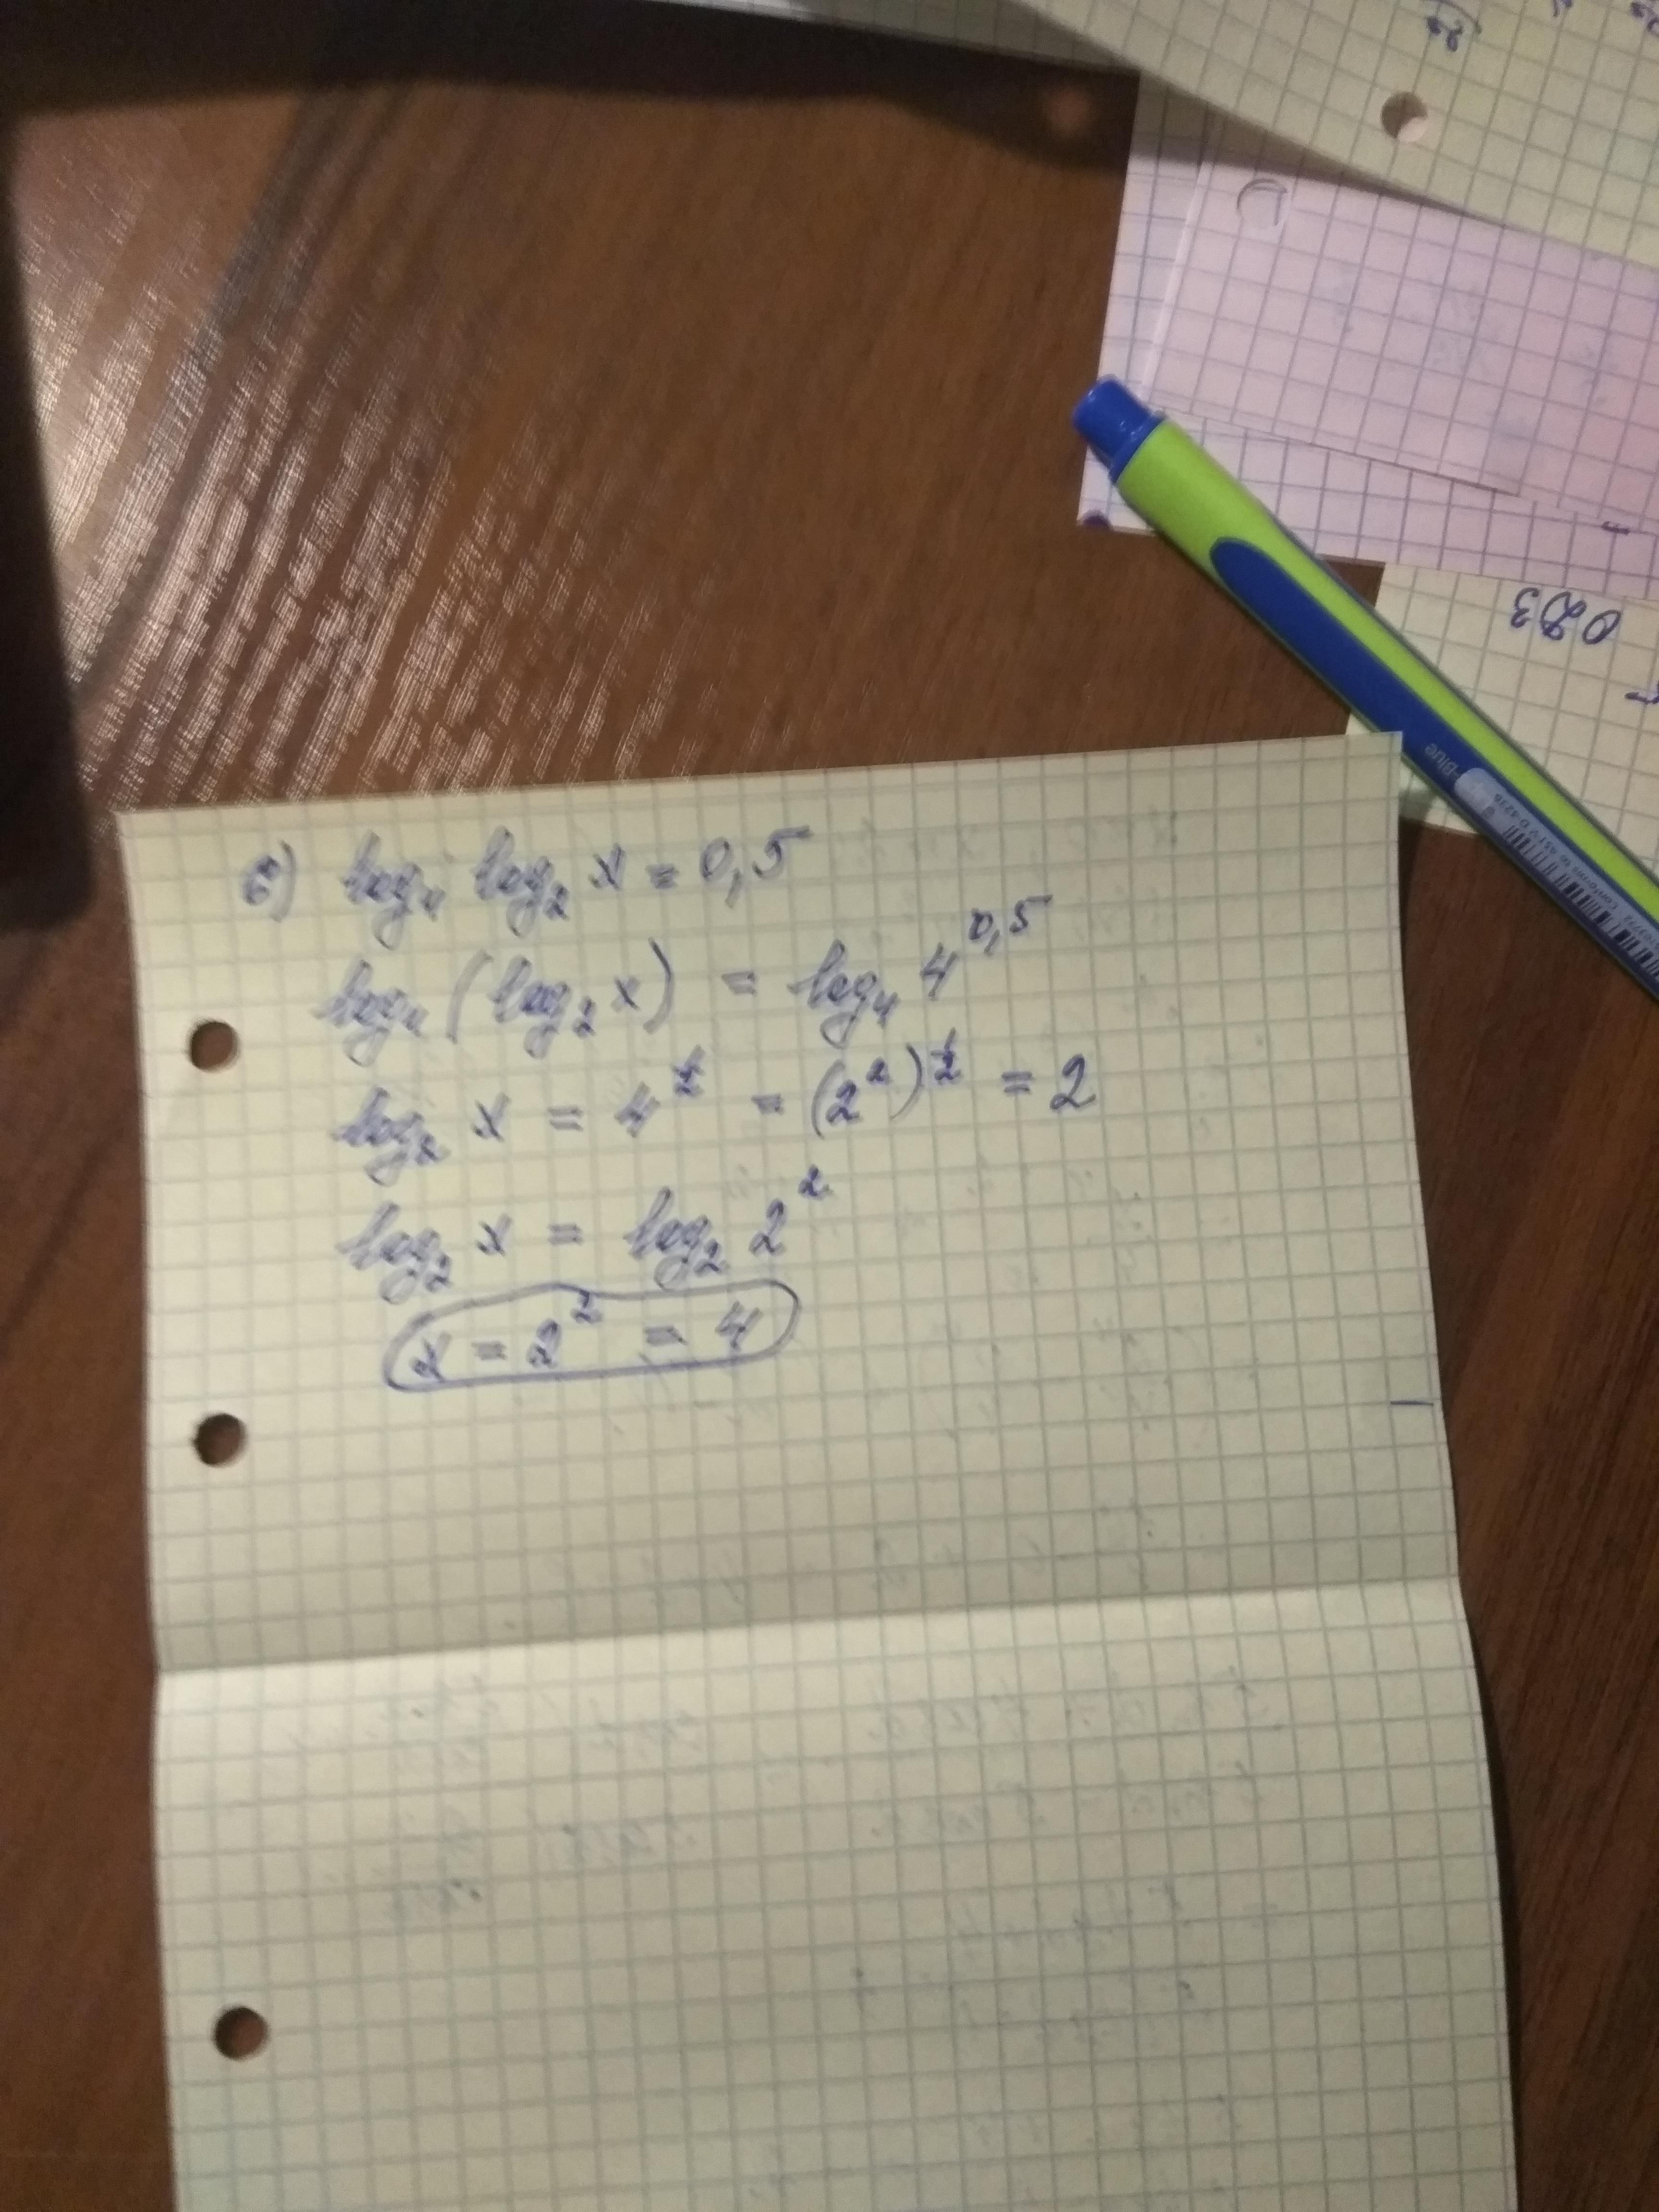 б) log₄ log₂ x = 0,5
log₄ (log₂ x) = log₄ 4^0,5
log₂ x = 4^½ = (2²)^½ = 2
log₂ x = log₂ 2²
x = 2² = 4